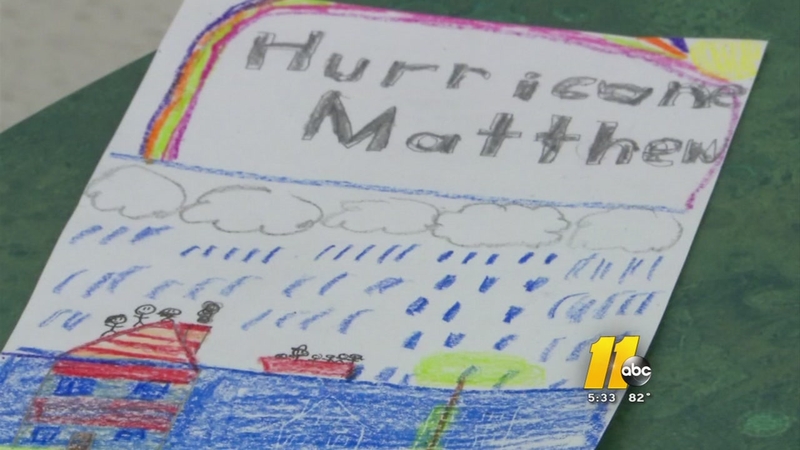 Hurricane
Matthew
11 abc
5:33 82°